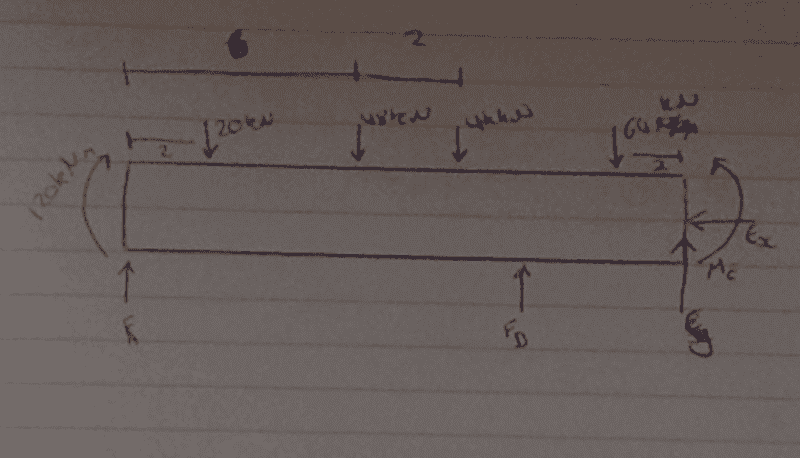 6 2
20kN 48kN 44kN 64 kN
2 2
120kNm
Ex
Mc
FD